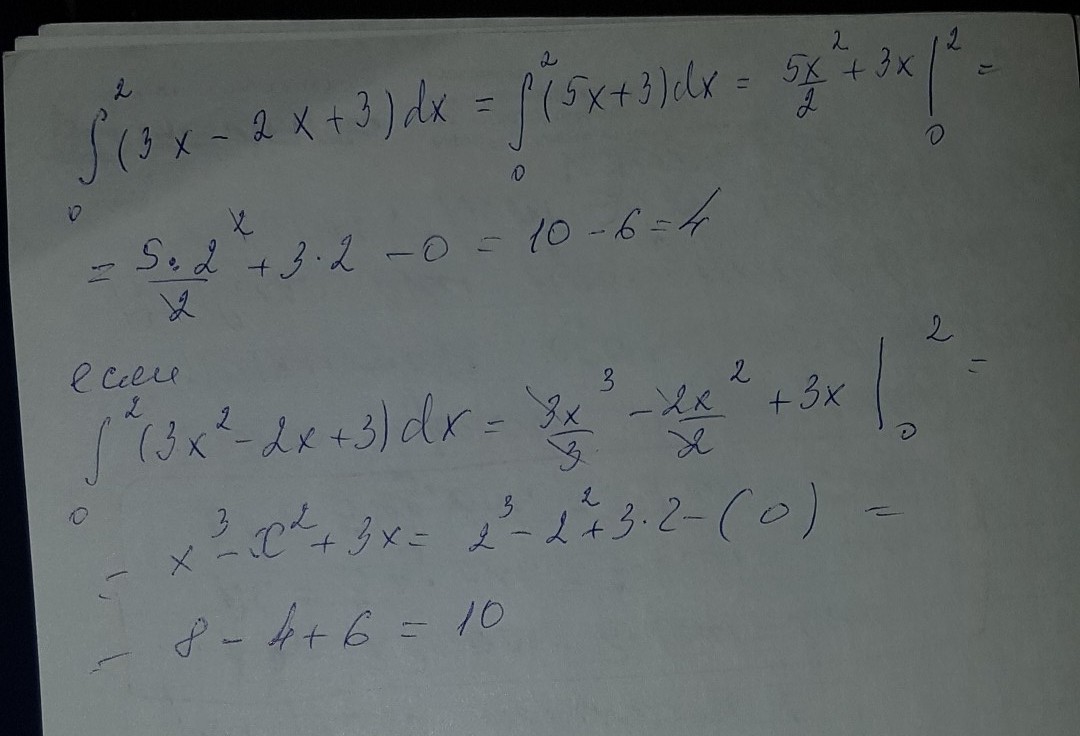 ∫₀² (3x - 2x + 3) dx = ∫₀² (5x + 3) dx = 5x²/2 + 3x |₀² =
= 5·2²/2 + 3·2 - 0 = 10 - 6 = 4
если
∫₀² (3x² - 2x + 3) dx = 3x³/3 - 2x²/2 + 3x |₀² =
= x³ - x² + 3x = 2³ - 2² + 3·2 - (0) =
= 8 - 4 + 6 = 10